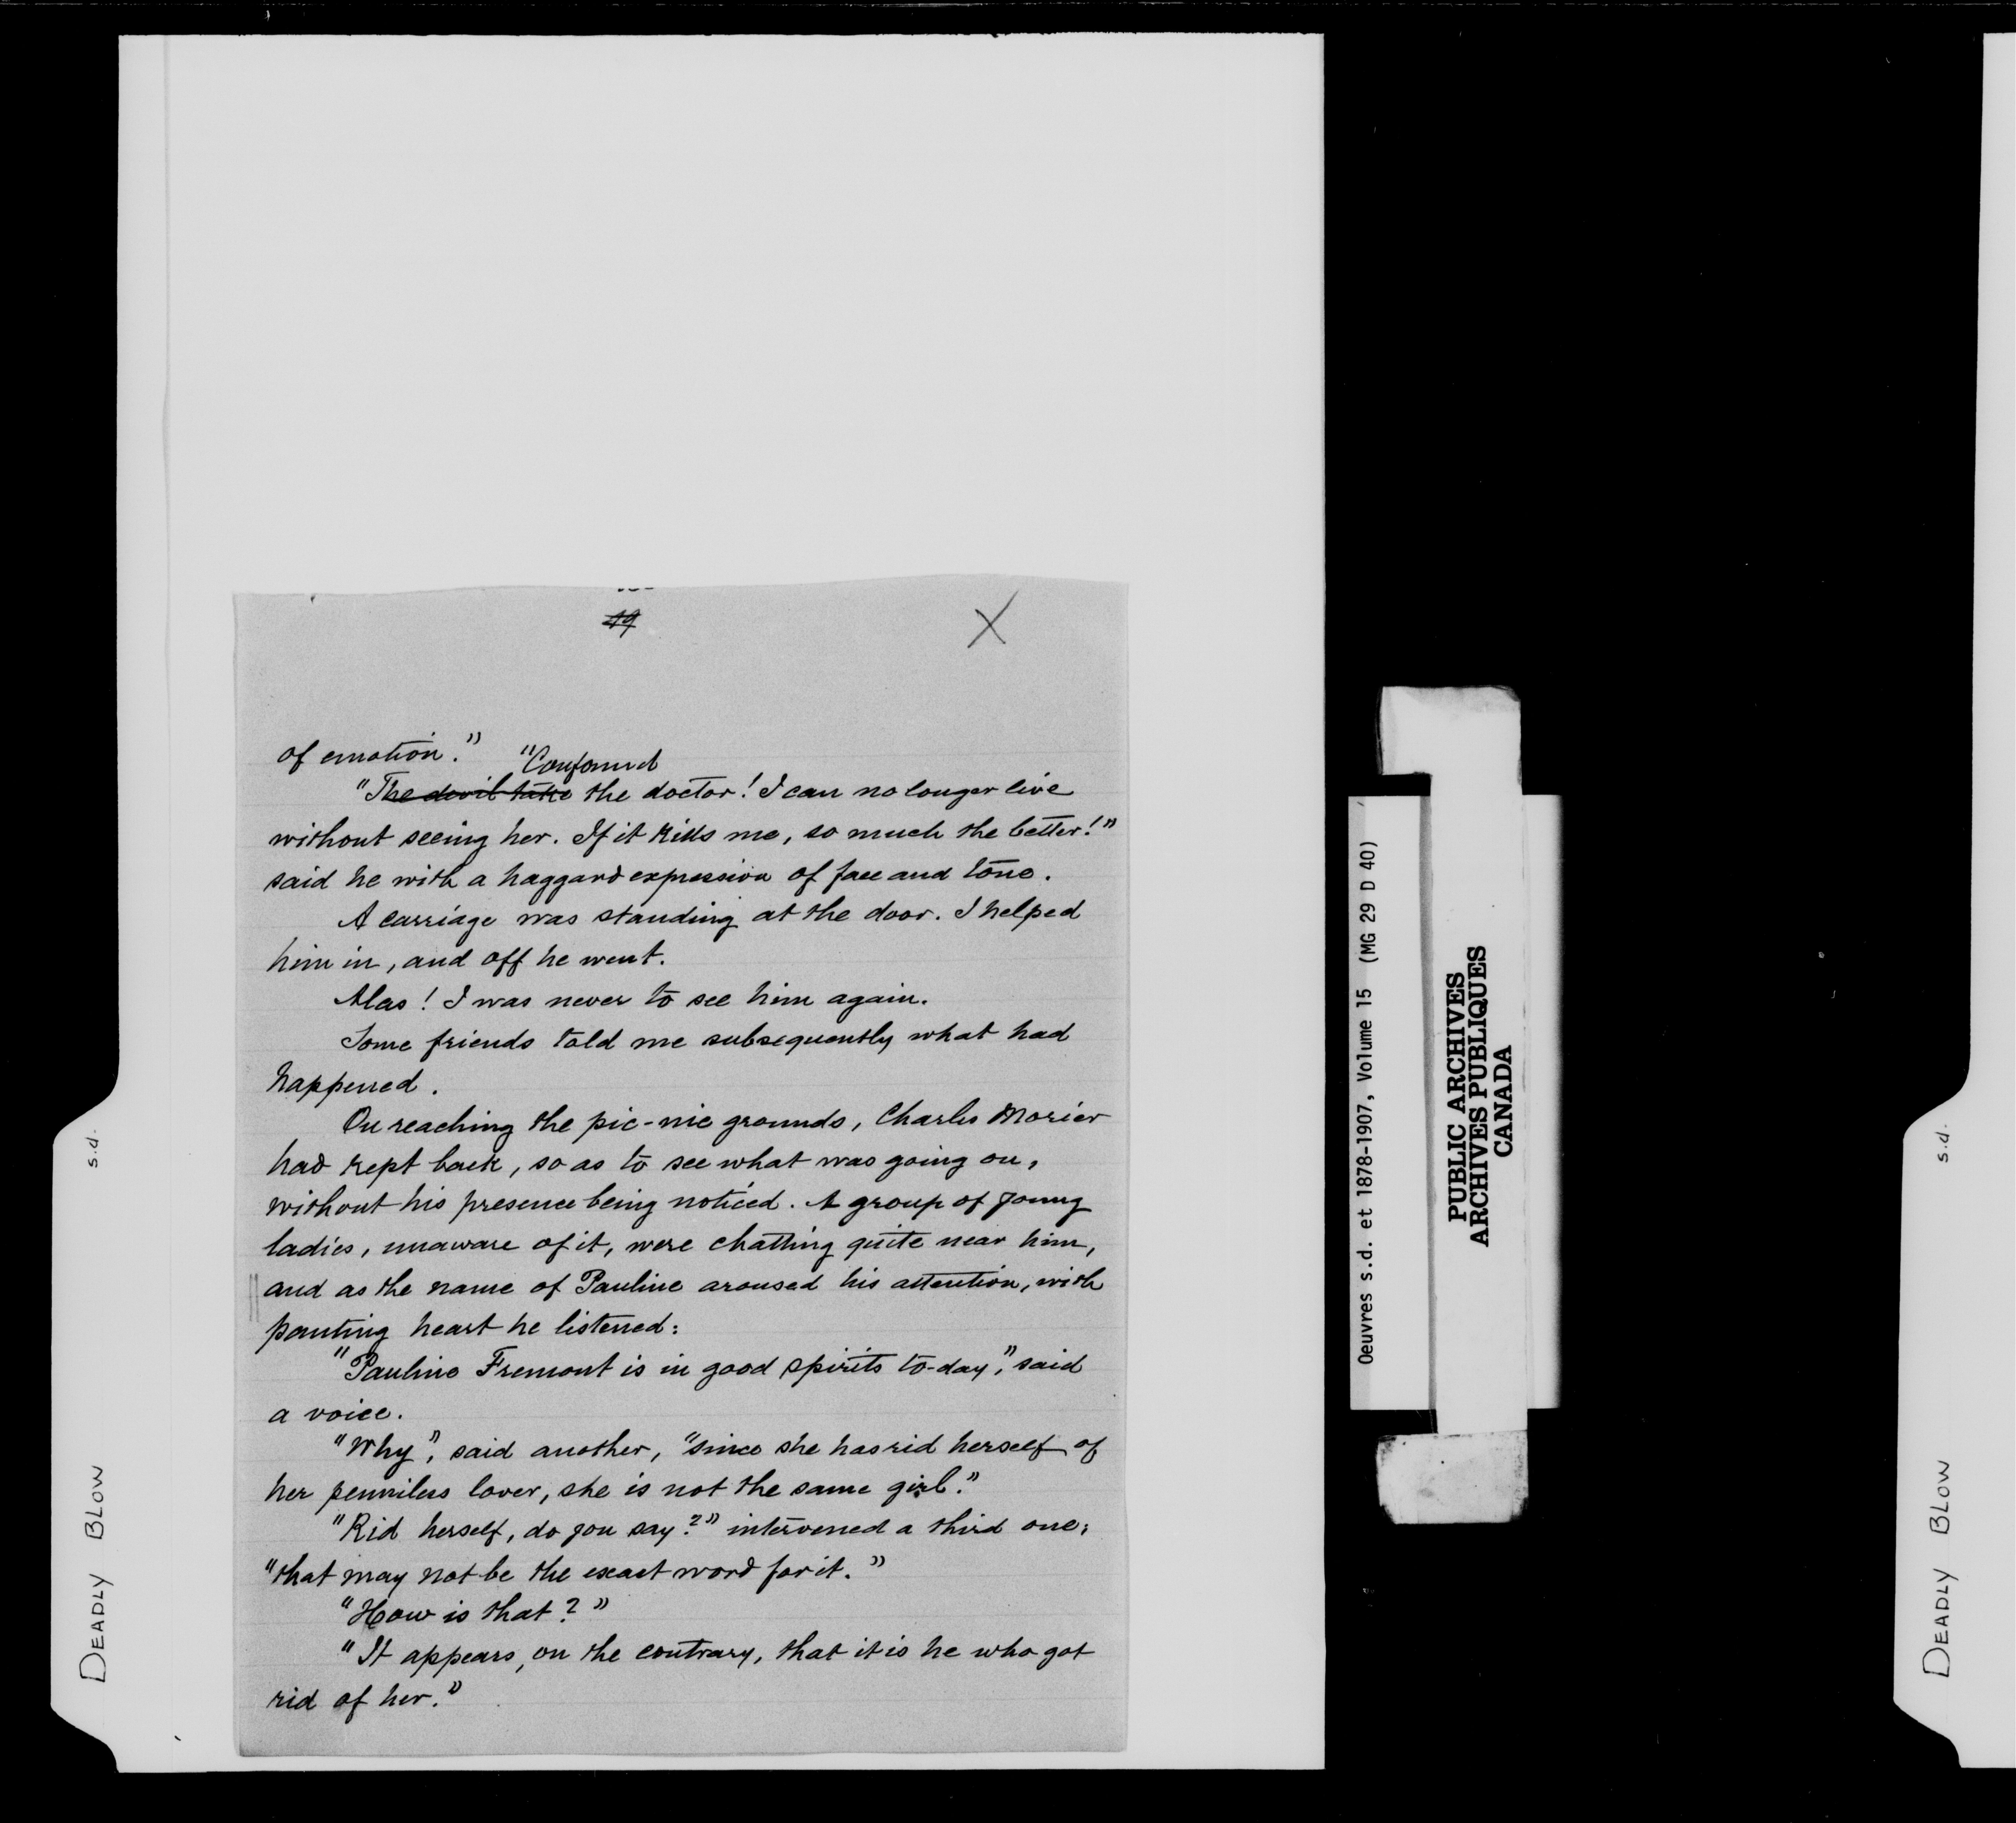 19
X
of emotion."
"Confound
"The devil take the doctor! I can no longer live
without seeing her. If it kills me, so much the better!"
said he with a haggard expression of face and tone.
A carriage was standing at the door. I helped
him in, and off he went.
Alas! I was never to see him again.
Some friends told me subsequently what had
happened.
On reaching the pic-nic grounds, Charles Morier
had kept back, so as to see what was going on,
without his presence being noticed. A group of young
ladies, unaware of it, were chatting quite near him,
and as the name of Pauline aroused his attention, with
panting heart he listened:
"Pauline Fremont is in good spirits to-day", said
a voice.
"Why", said another, "since she has rid herself of
her penniless lover, she is not the same girl."
"Rid herself, do you say?" intervened a third one;
"that may not be the exact word for it."
"How is that?"
"It appears, on the contrary, that it is he who got
rid of her."
DEADLY BLOW s.d.
Oeuvres s.d. et 1878-1907, Volume 15 (MG 29 D 40)
PUBLIC ARCHIVES
ARCHIVES PUBLIQUES
CANADA
DEADLY BLOW s.d.